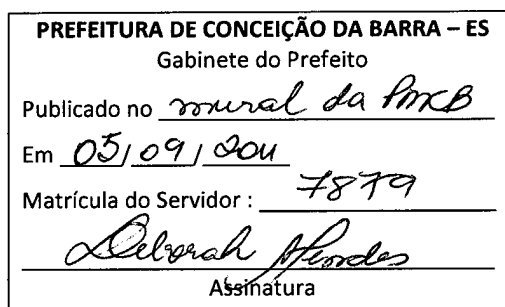 PREFEITURA DE CONCEIÇÃO DA BARRA – ES
Gabinete do Prefeito
Publicado no mural da PMCB
Em 05/09/2011
Matrícula do Servidor : 7879
Deborah Mendes
Assinatura